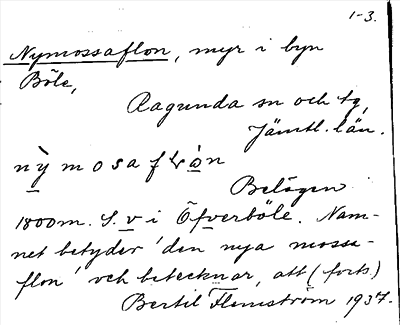 1-3.
Nymossaflon, myr i byn
Böle,
Ragunda sn och tg,
Jämtl. län.
Belägen
1800 m. S. v i Öfverböle. Nam-
net betyder 'den nya mosse-
flon' och betecknar, att (forts.)
Bertil Flemström 1937.